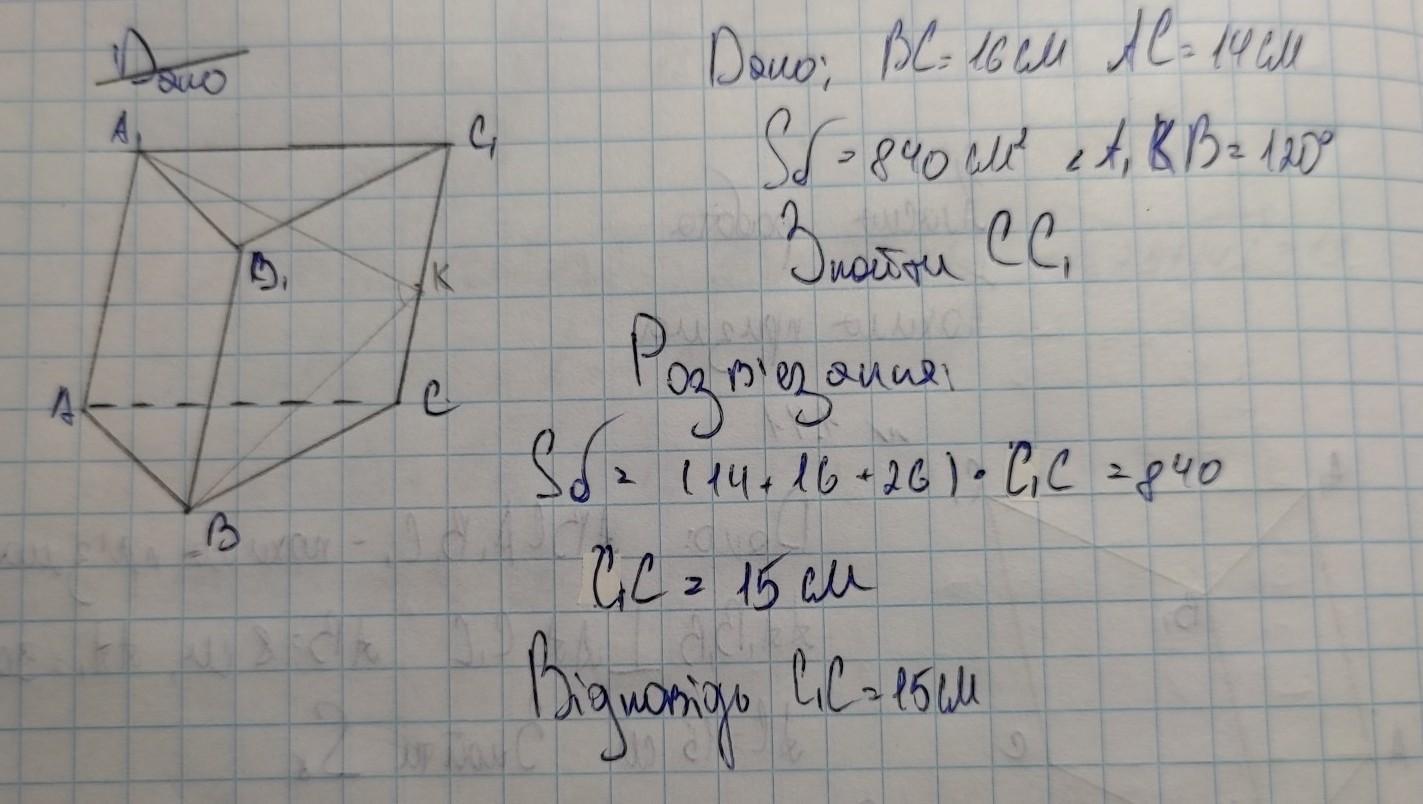 Дано
Дано; BC = 16 см AC = 14 см
Sб = 840 см² ∠A₁KB = 120°
Знайти CC₁
A₁
C₁
B₁
K
A
C
B
Розв'язання:
Sб = (14 + 16 + 26) · C₁C = 840
C₁C = 15 см
Відповідь C₁C = 15 см